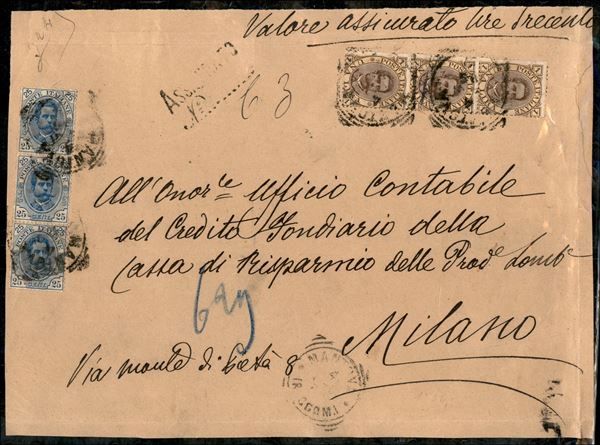 Valore assicurato lire trecento
63
25 POSTE ITALIANE 25
25 CENT 25
25 CENT 25
All'Onor.le Ufficio Contabile
del Credito Fondiario della
Cassa di Risparmio delle Prov.e Lomb.e
Milano
629
Via monte di Pietà 8
MANTOVA